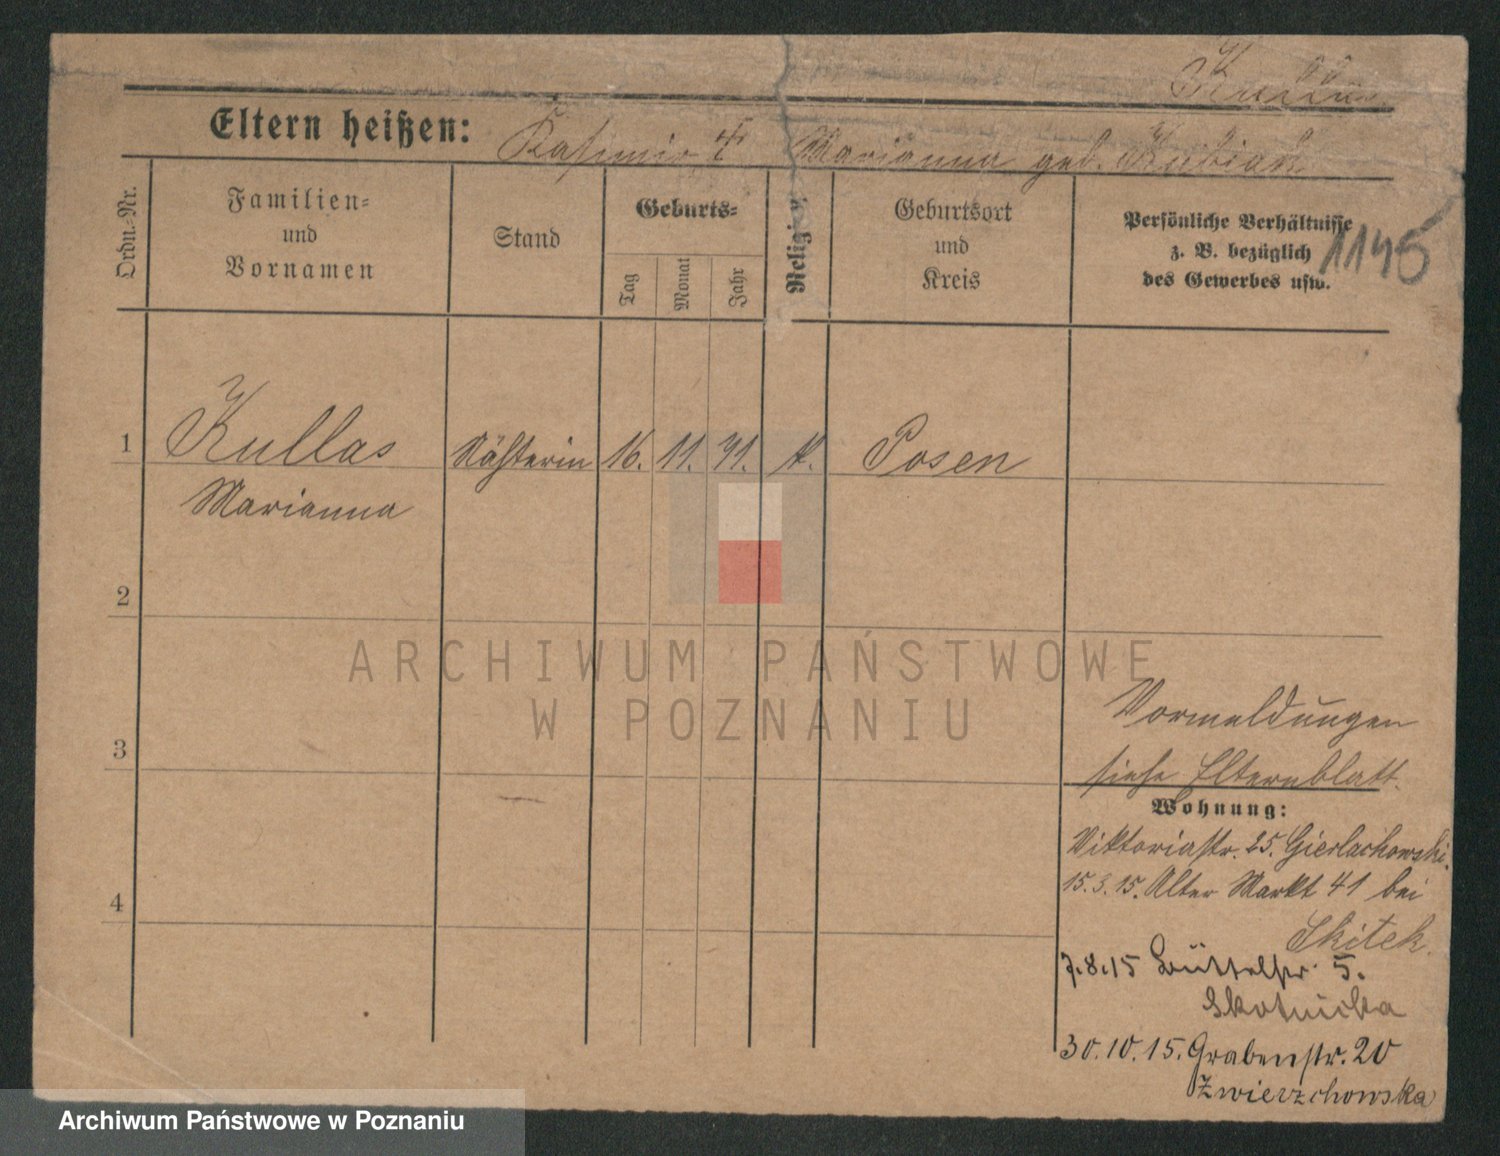 Eltern heißen: Kasimir † Marianna geb. Kubiak
Ordn.-Nr.
Familien=
und
Vornamen
Stand
Geburts=
Tag
Monat
Jahr
Religion
Geburtsort
und
Kreis
Persönliche Verhältnisse
z. B. bezüglich
des Gewerbes usw.
1145
1 Kullas Nähterin 16. 11. 91. k. Posen
Marianna
2
3
4
Vormeldungen
siehe Elternblatt.
Wohnung:
Viktoriastr. 25. Gierlachowski.
15.3.15. Alter Markt 41 bei
Skitek.
7.8.15 Büttelstr. 5.
Skotnicka
30.10.15. Grabenstr. 20
Zwierzchowska
ARCHIWUM PAŃSTWOWE
W POZNANIU
Archiwum Państwowe w Poznaniu